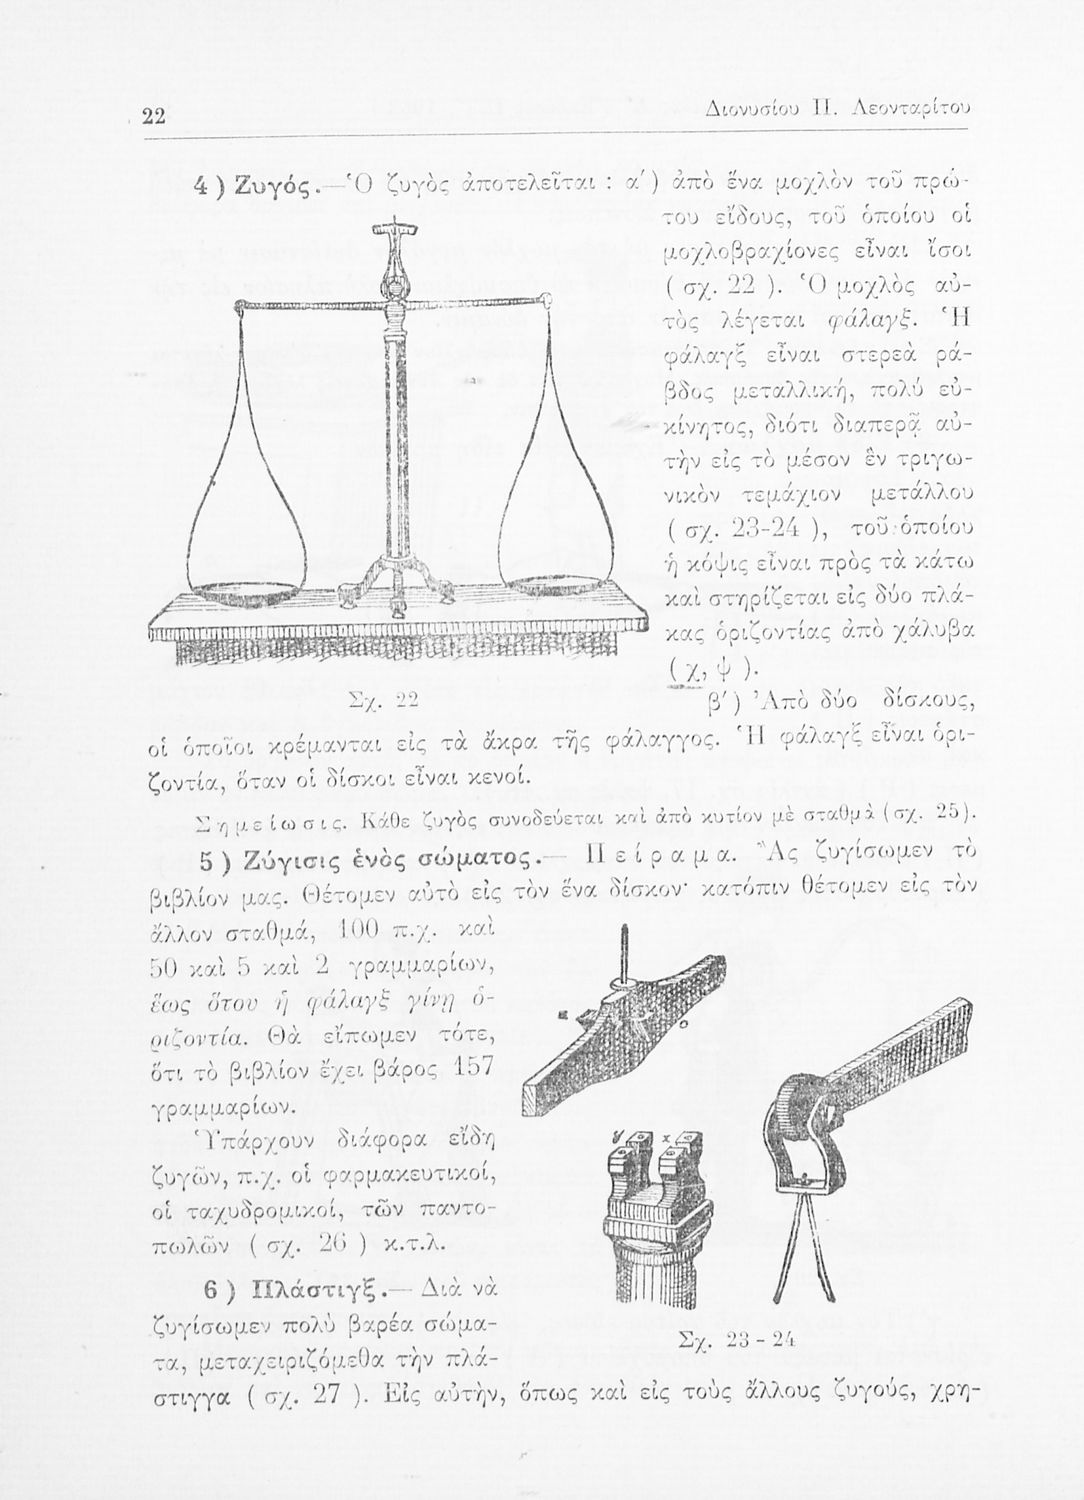 22
Διονυσίου Π. Λεονταρίτου
4 ) Ζυγός.—Ὁ ζυγὸς ἀποτελεῖται : α΄) ἀπὸ ἕνα μοχλὸν τοῦ πρώ-
του εἴδους, τοῦ ὁποίου οἱ
μοχλοβραχίονες εἶναι ἴσοι
( σχ. 22 ). Ὁ μοχλὸς αὐ-
τὸς λέγεται φάλαγξ. Ἡ
φάλαγξ εἶναι στερεὰ ρά-
βδος μεταλλική, πολύ εὐ-
κίνητος, διότι διαπερᾷ αὐ-
τὴν εἰς τὸ μέσον ἓν τριγω-
νικὸν τεμάχιον μετάλλου
( σχ. 23-24 ), τοῦ ὁποίου
ἡ κόψις εἶναι πρὸς τὰ κάτω
καὶ στηρίζεται εἰς δύο πλά-
κας ὁριζοντίας ἀπὸ χάλυβα
( χ, ψ ).
Σχ. 22
β΄) Ἀπὸ δύο δίσκους,
οἱ ὁποῖοι κρέμανται εἰς τὰ ἄκρα τῆς φάλαγγος. Ἡ φάλαγξ εἶναι ὁρι-
ζοντία, ὅταν οἱ δίσκοι εἶναι κενοί.
Σημείωσις. Κάθε ζυγὸς συνοδεύεται καὶ ἀπὸ κυτίον μὲ σταθμὰ (σχ. 25).
5 ) Ζύγισις ἑνὸς σώματος.— Πείραμα. Ἂς ζυγίσωμεν τὸ
βιβλίον μας. Θέτομεν αὐτὸ εἰς τὸν ἕνα δίσκον· κατόπιν θέτομεν εἰς τὸν
ἄλλον σταθμά, 100 π.χ. καὶ
50 καὶ 5 καὶ 2 γραμμαρίων,
ἕως ὅτου ἡ φάλαγξ γίνῃ ὁ-
ριζοντία. Θὰ εἴπωμεν τότε,
ὅτι τὸ βιβλίον ἔχει βάρος 157
γραμμαρίων.
Ὑπάρχουν διάφορα εἴδη
ζυγῶν, π.χ. οἱ φαρμακευτικοί,
οἱ ταχυδρομικοί, τῶν παντο-
πωλῶν ( σχ. 26 ) κ.τ.λ.
6 ) Πλάστιγξ.— Διὰ νὰ
ζυγίσωμεν πολὺ βαρέα σώμα-
τα, μεταχειριζόμεθα τὴν πλά-
Σχ. 23 - 24
στιγγα ( σχ. 27 ). Εἰς αὐτὴν, ὅπως καὶ εἰς τοὺς ἄλλους ζυγούς, χρη-